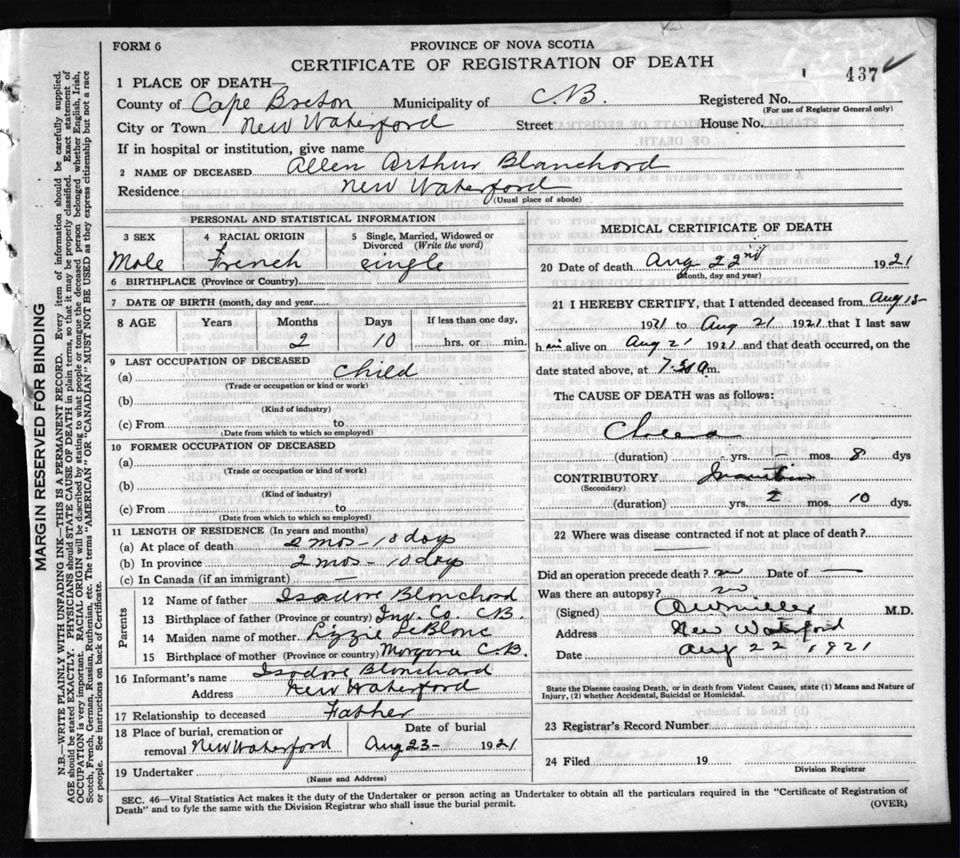 FORM 6
PROVINCE OF NOVA SCOTIA
CERTIFICATE OF REGISTRATION OF DEATH
437
1 PLACE OF DEATH
County of Cape Breton Municipality of C.B. Registered No.
(For use of Registrar General only)
City or Town New Waterford Street House No.
If in hospital or institution, give name
2 NAME OF DECEASED Allen Arthur Blanchard
Residence New Waterford
(Usual place of abode)
PERSONAL AND STATISTICAL INFORMATION
3 SEX 4 RACIAL ORIGIN 5 Single, Married, Widowed or Divorced (Write the word)
Male French single
6 BIRTHPLACE (Province or Country)
7 DATE OF BIRTH (month, day and year)
8 AGE Years Months Days If less than one day,
2 10 hrs. or min.
9 LAST OCCUPATION OF DECEASED
(a) Child
(Trade or occupation or kind of work)
(b)
(Kind of industry)
(c) From to
(Date from which to which so employed)
10 FORMER OCCUPATION OF DECEASED
(a)
(Trade or occupation or kind of work)
(b)
(Kind of industry)
(c) From to
(Date from which to which so employed)
11 LENGTH OF RESIDENCE (In years and months)
(a) At place of death 2 mos - 10 days
(b) In province 2 mos - 10 days
(c) In Canada (if an immigrant) —
Parents
12 Name of father Isadore Blanchard
13 Birthplace of father (Province or country) Inv. Co. C.B.
14 Maiden name of mother Lizzie LeBlanc
15 Birthplace of mother (Province or country) C.B.
16 Informant's name Isadore Blanchard
Address New Waterford
17 Relationship to deceased Father
18 Place of burial, cremation or removal New Waterford
Date of burial
Aug 23- 1921
19 Undertaker
(Name and Address)
MEDICAL CERTIFICATE OF DEATH
20 Date of death Aug 22nd 1921
(Month, day and year)
21 I HEREBY CERTIFY, that I attended deceased from Aug
1921 to Aug 21 1921 that I last saw
h im alive on Aug 21 1921 and that death occurred, on the
date stated above, at 7.30 a m.
The CAUSE OF DEATH was as follows:
(duration) yrs. - mos. 8 dys
CONTRIBUTORY
(Secondary)
(duration) yrs. 2 mos. 10 dys.
22 Where was disease contracted if not at place of death?
Did an operation precede death? no Date of —
Was there an autopsy? no
(Signed) M.D.
Address New Waterford
Date Aug 22 1921
State the Disease causing Death, or in death from Violent Causes, state (1) Means and Nature of
Injury, (2) whether Accidental, Suicidal or Homicidal.
23 Registrar's Record Number
24 Filed 19
Division Registrar
SEC. 46—Vital Statistics Act makes it the duty of the Undertaker or person acting as Undertaker to obtain all the particulars required in the "Certificate of Registration of
Death" and to fyle the same with the Division Registrar who shall issue the burial permit. (OVER)
MARGIN RESERVED FOR BINDING
N.B.—WRITE PLAINLY WITH UNFADING INK—THIS IS A PERMANENT RECORD. Every item of information should be carefully supplied.
AGE should be stated EXACTLY. PHYSICIANS should STATE CAUSE OF DEATH in plain terms, so that it may be properly classified. Exact statement of
OCCUPATION is very important. RACIAL ORIGIN will be described by stating to what people or tongue the deceased person belonged whether English, Irish,
Scotch, French, German, Russian, Ruthenian, etc. The terms "AMERICAN" OR "CANADIAN" MUST NOT BE USED as they express citizenship but not a race
or people. See instructions on back of Certificate.